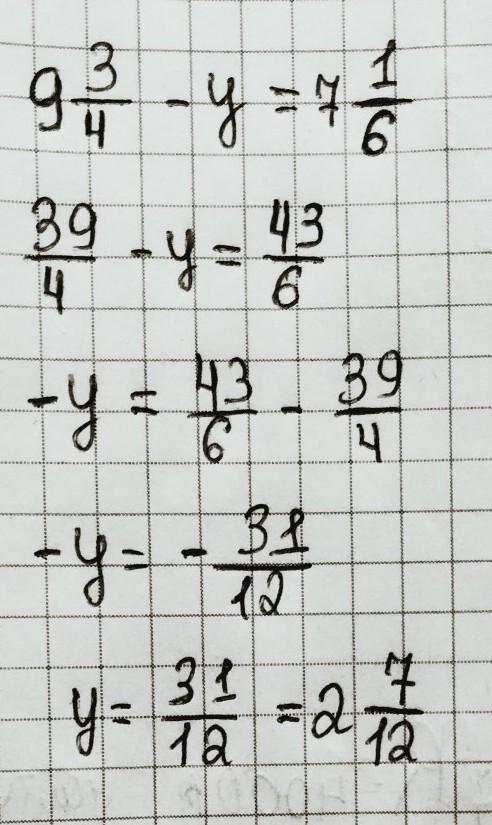 9 3/4 - y = 7 1/6
39/4 - y = 43/6
-y = 43/6 - 39/4
-y = - 31/12
y = 31/12 = 2 7/12